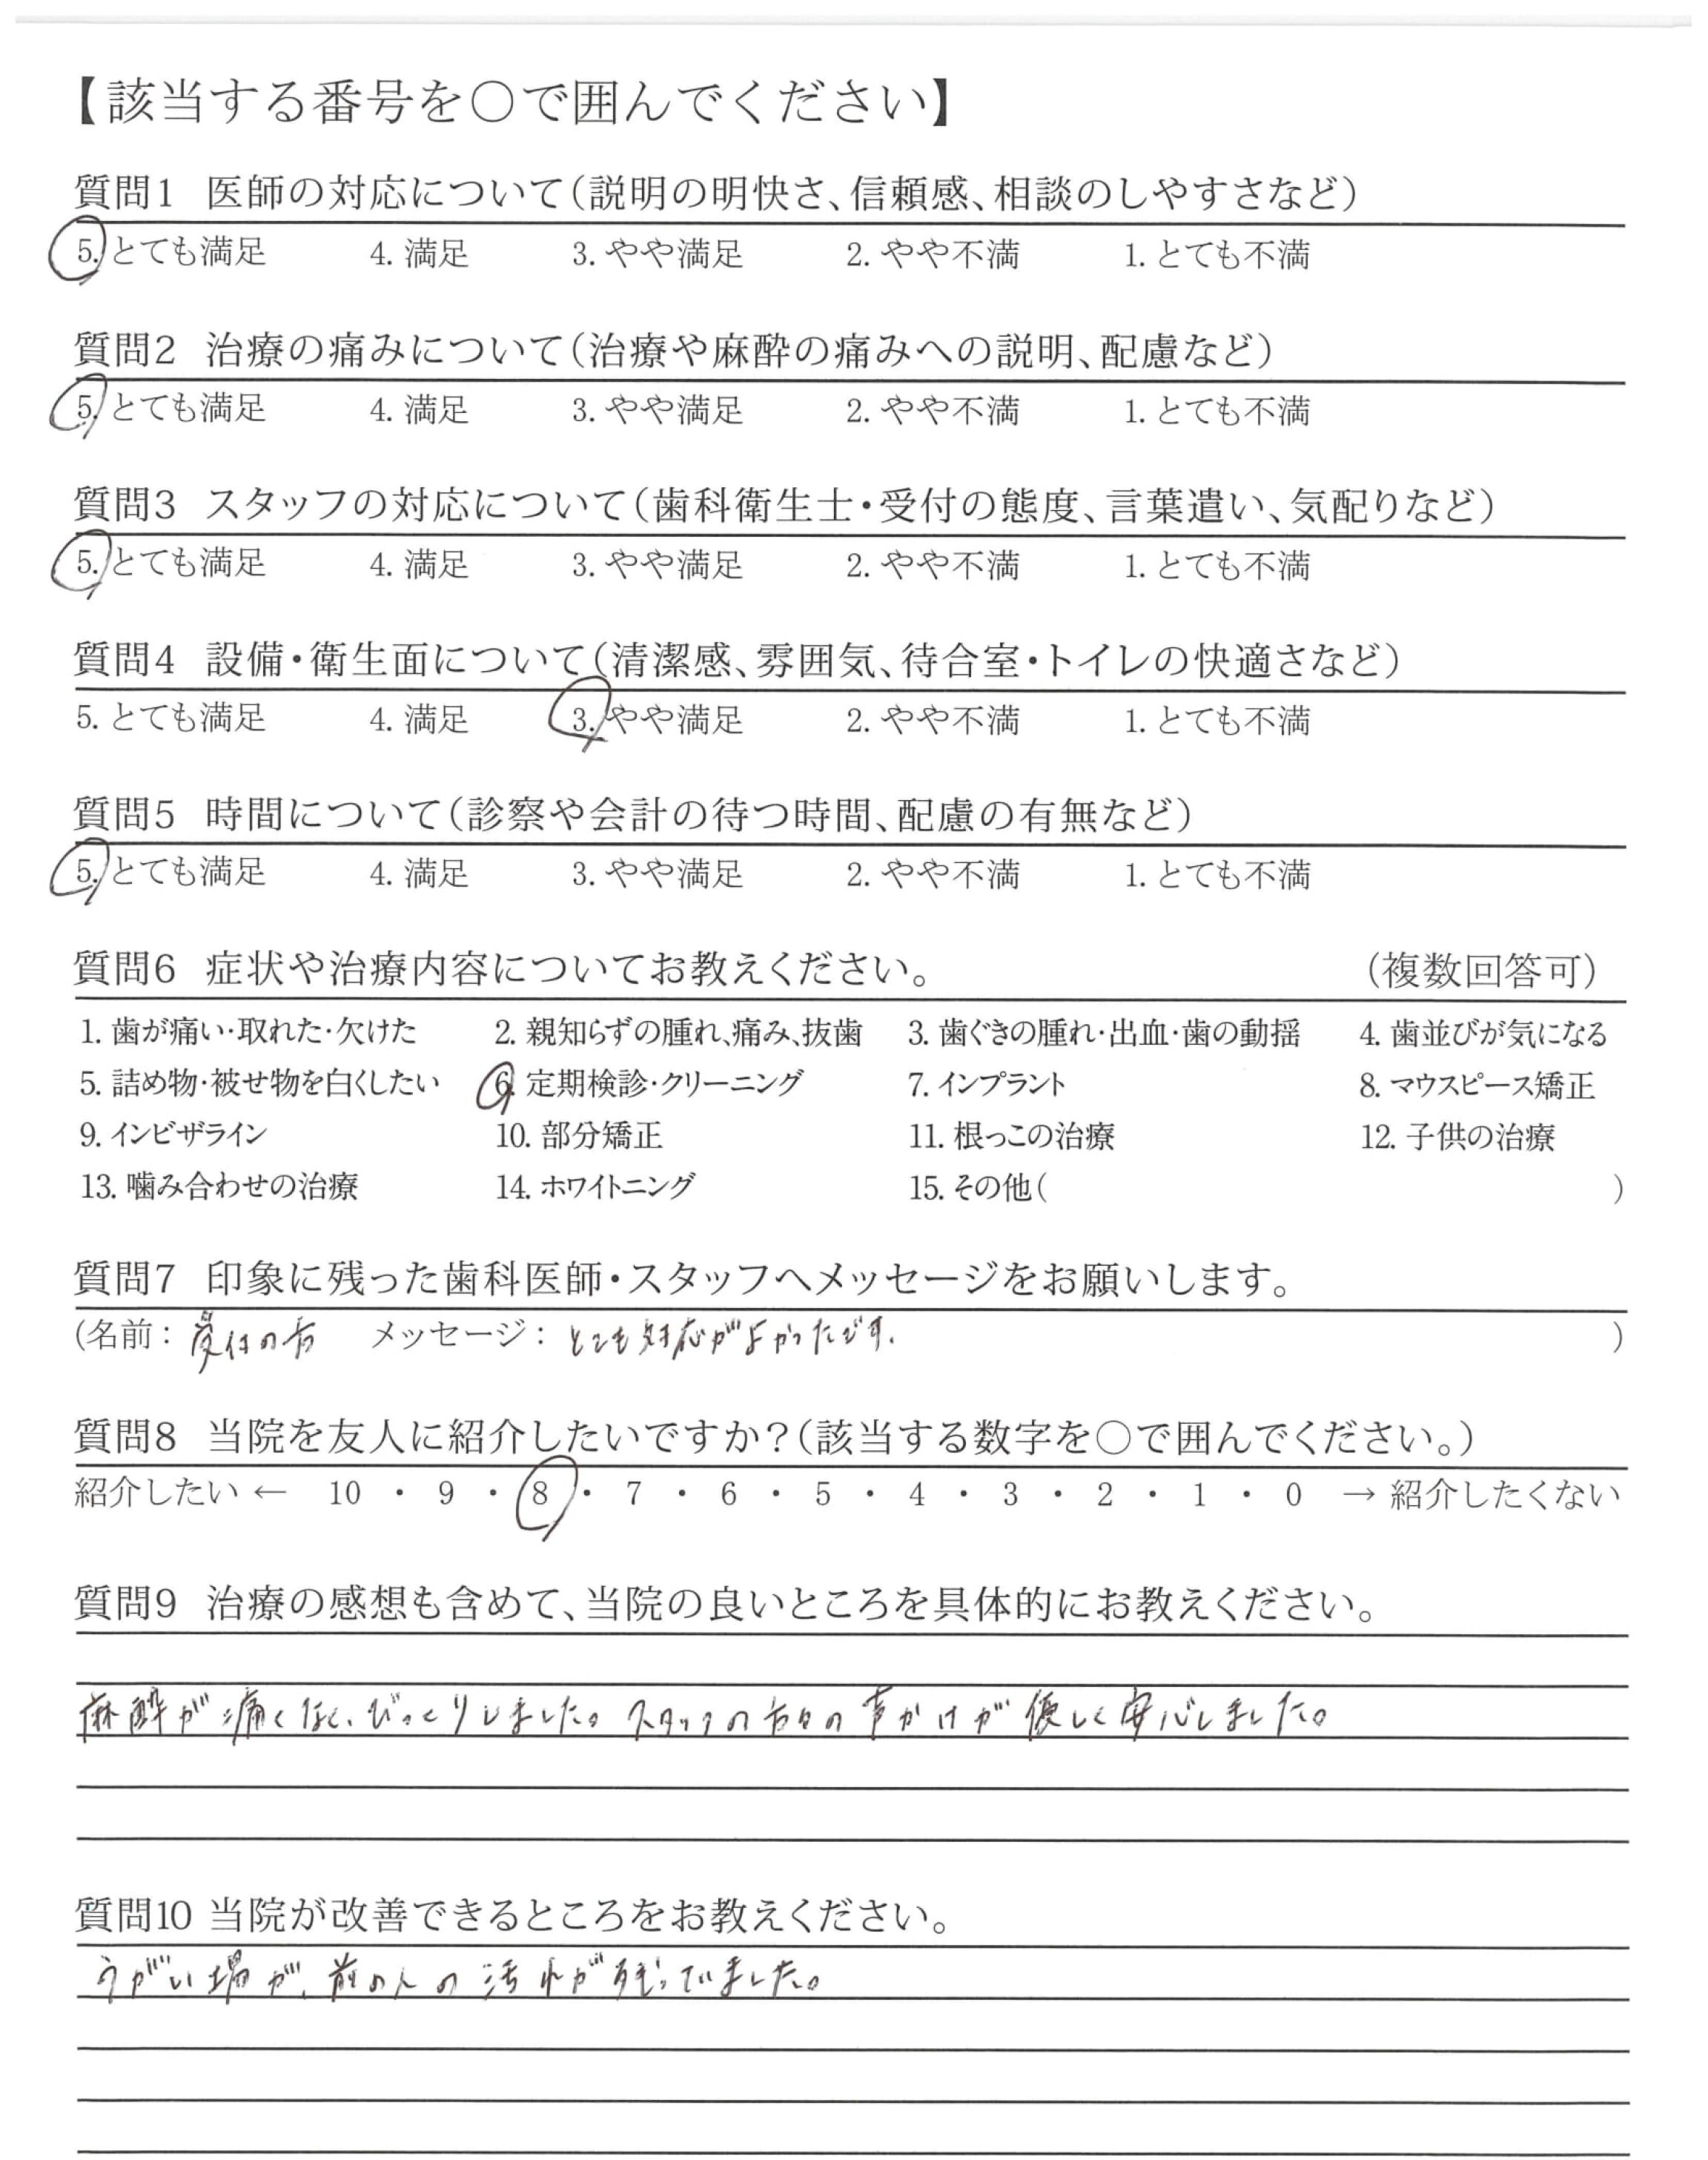 【該当する番号を○で囲んでください】
質問1 医師の対応について（説明の明快さ、信頼感、相談のしやすさなど）
5. とても満足 4. 満足 3. やや満足 2. やや不満 1. とても不満
質問2 治療の痛みについて（治療や麻酔の痛みへの説明、配慮など）
5. とても満足 4. 満足 3. やや満足 2. やや不満 1. とても不満
質問3 スタッフの対応について（歯科衛生士・受付の態度、言葉遣い、気配りなど）
5. とても満足 4. 満足 3. やや満足 2. やや不満 1. とても不満
質問4 設備・衛生面について（清潔感、雰囲気、待合室・トイレの快適さなど）
5. とても満足 4. 満足 3. やや満足 2. やや不満 1. とても不満
質問5 時間について（診察や会計の待つ時間、配慮の有無など）
5. とても満足 4. 満足 3. やや満足 2. やや不満 1. とても不満
質問6 症状や治療内容についてお教えください。 （複数回答可）
1. 歯が痛い・取れた・欠けた 2. 親知らずの腫れ、痛み、抜歯 3. 歯ぐきの腫れ・出血・歯の動揺 4. 歯並びが気になる
5. 詰め物・被せ物を白くしたい 6. 定期検診・クリーニング 7. インプラント 8. マウスピース矯正
9. インビザライン 10. 部分矯正 11. 根っこの治療 12. 子供の治療
13. 噛み合わせの治療 14. ホワイトニング 15. その他（ ）
質問7 印象に残った歯科医師・スタッフへメッセージをお願いします。
（名前： 受付の方 メッセージ： とても対応がよかったです. ）
質問8 当院を友人に紹介したいですか？（該当する数字を○で囲んでください。）
紹介したい ← 10 ・ 9 ・ 8 ・ 7 ・ 6 ・ 5 ・ 4 ・ 3 ・ 2 ・ 1 ・ 0 → 紹介したくない
質問9 治療の感想も含めて、当院の良いところを具体的にお教えください。
麻酔が痛くなく、びっくりしました。スタッフの方々の声かけが優しく安心しました。
質問10 当院が改善できるところをお教えください。
うがい場が、前の人の汚れが残っていました。